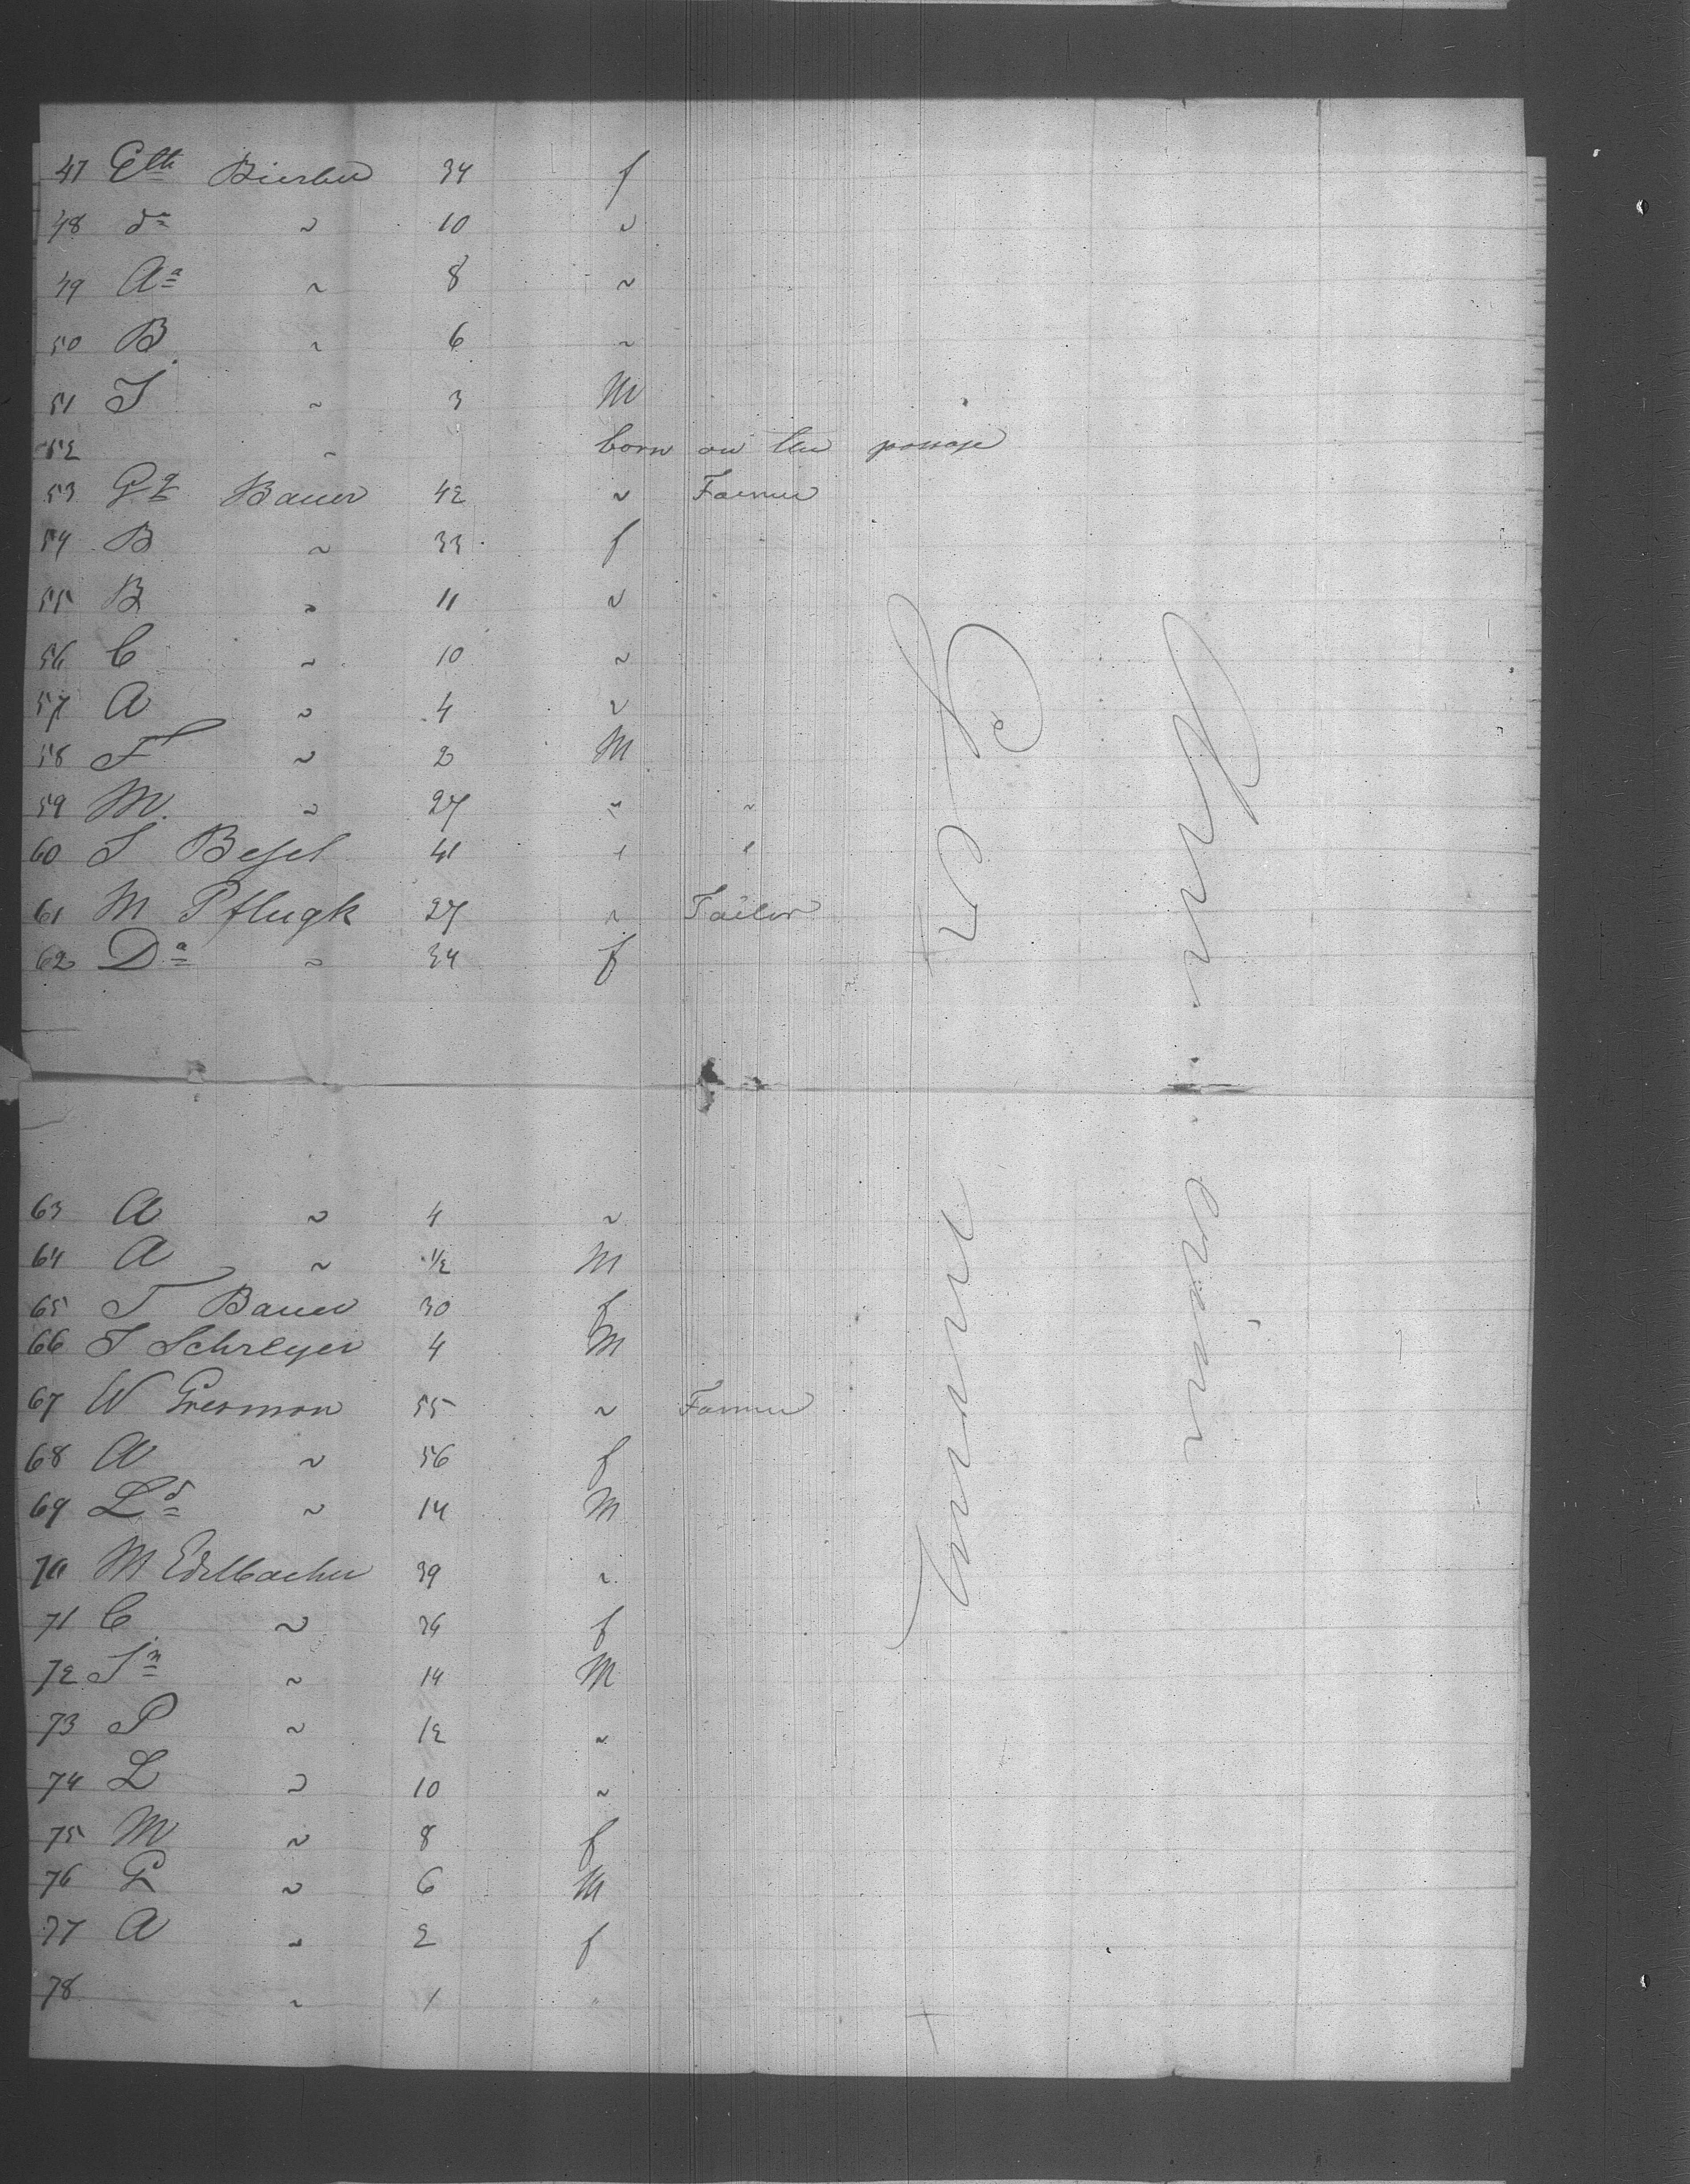 47 Elth Bierlee 34 f
48 da ~ 10 ~
49 Aa ~ 8 ~
50 B ~ 6 ~
51 J ~ 3 M
52 ~ born on the passage
53 Gg Bauer 42 ~ Farmer
54 B ~ 33 f
55 B ~ 11 ~
56 C ~ 10 ~
57 A ~ 4 ~
58 F ~ 2 M
59 M. ~ 27 ~ ~
60 J Besel 41 " "
61 M Pflugk 27 ~ Tailor
62 Da ~ 34 f
63 A ~ 4 ~
64 A ~ 1/2 M
65 T Bauer 30 f
66 J Schreyer 4 M
67 W Griesmon 55 ~ Farmer
68 A ~ 56 f
69 Ld ~ 14 M
70 M Edelbacher 39 ~
71 C ~ 36 f
72 Jn ~ 14 M
73 P ~ 12 ~
74 L ~ 10 ~
75 M ~ 8 f
76 G ~ 6 M
77 A ~ 2 f
78 ~ 1 "